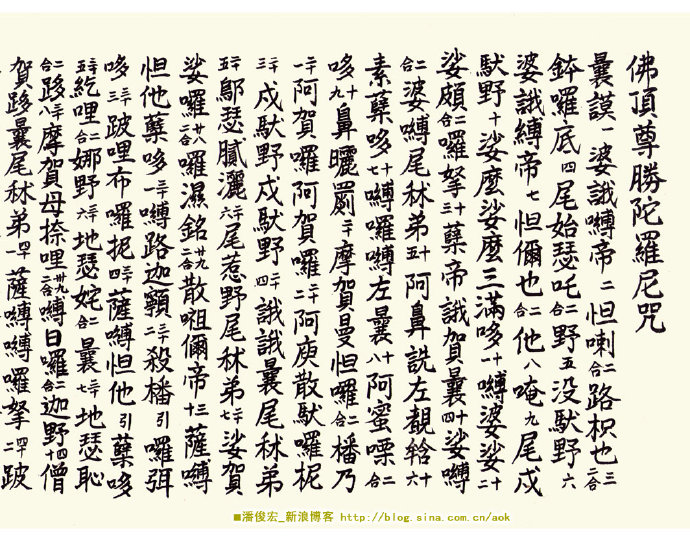 佛頂尊勝陀羅尼咒
曩謨一婆誐縛帝二怛喇二合路枳也三二合
鉢羅底四尾始瑟吒二合野五没馱野六
婆誐縛帝七怛儞也二合他八唵九尾戍
馱野十娑麼娑麼三滿哆十一縛婆娑十二
娑頗二合羅拏十三蘖帝誐賀曩十四娑縛
二合婆縛尾秫弟十五阿鼻詵左覩𤚥十六
素蘖哆十七縛羅縛左曩十八阿蜜㗚二合
哆十九鼻曬罽二十摩賀曼怛羅二合橎乃
二十一阿賀羅阿賀羅二十二阿庾散馱羅柅
二十三戍馱野戍馱野二十四誐誐曩尾秫弟
二十五鄔瑟膩灑二十六尾惹野尾秫弟二十七娑賀
娑囉二合廿八囉濕銘二合廿九散咀儞帝三十薩縛
怛他蘖哆三十一縛路迦𩕳三十二殺橎引囉弭
哆三十三跛哩布囉抳三十四薩縛怛他引蘖哆
三十五紇哩二合娜野三十六地瑟姹二合曩三十七地瑟恥
二合跢三十八摩賀母捺哩二合卅九縛日囉二合迦野四十僧
賀跢曩尾秫弟四十一薩縛縛囉拏四十二跛
■潘俊宏_新浪博客 http://blog.sina.com.cn/aok